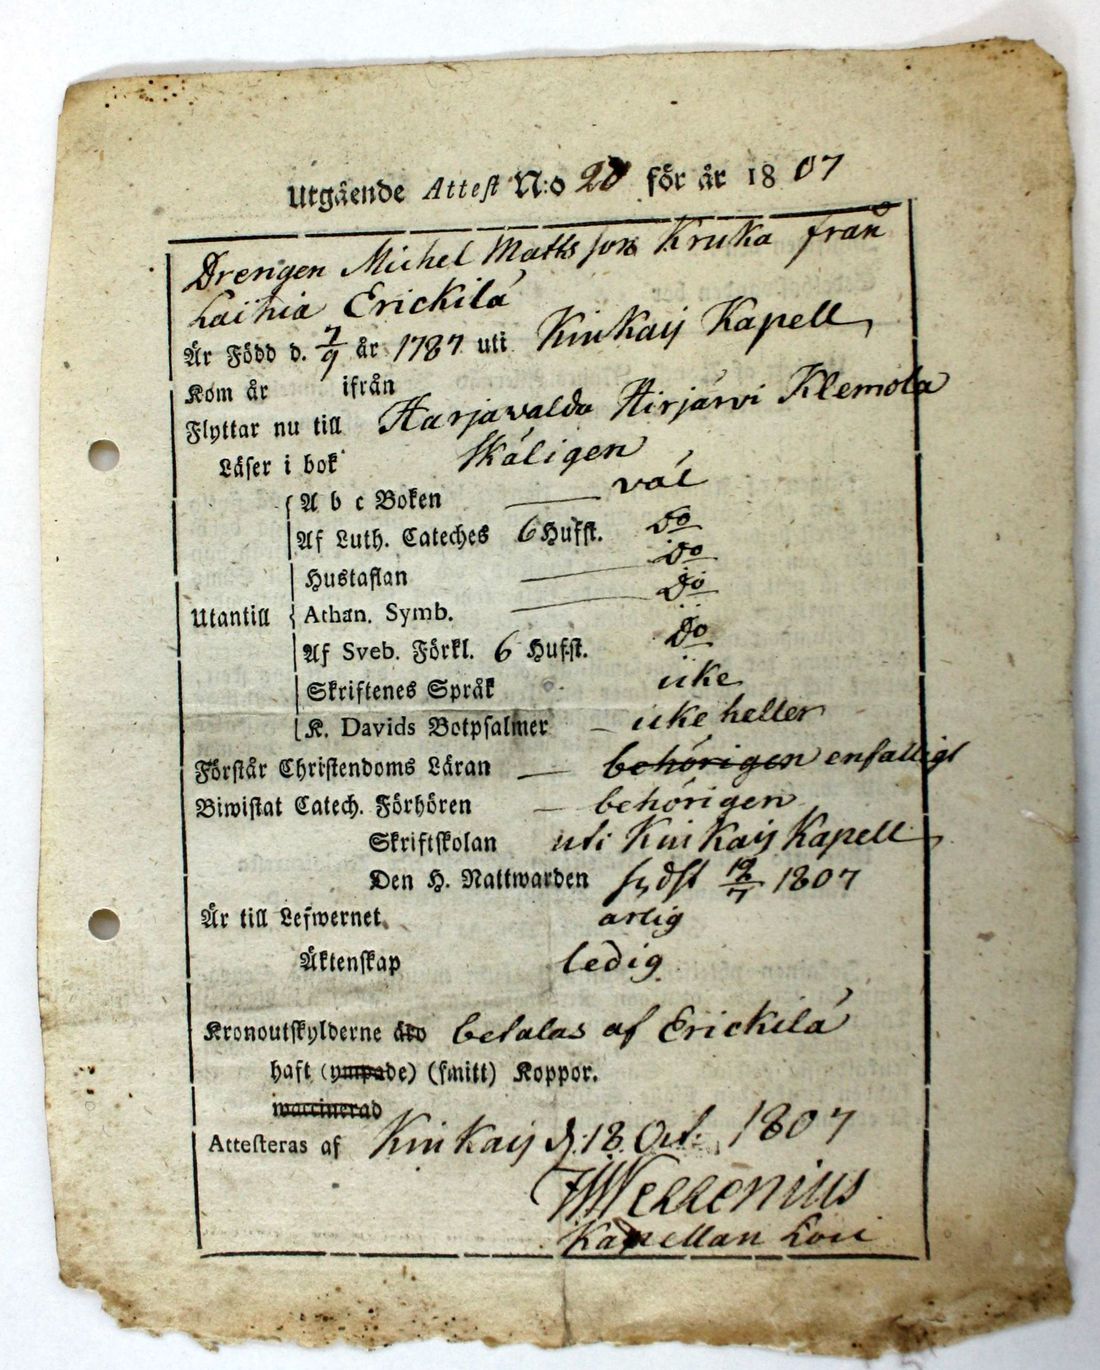 Utgående Attest N:o 20 för år 1807
Drengen Michel Mattsson Kruka från
Laihia Erickilä
Är Född d. 7/9 år 1787 uti Kiukais Kapell
Kom år ifrån
Flyttar nu till Harjavalda Hirjärvi Klemola
Läser i bok skäligen
A b c Boken — väl
Af Luth. Cateches 6 Hufst. Do
Hustaflan — Do
Utantill Athan. Symb. — Do
Af Sveb. Förkl. 6 Hufst. Do
Skriftenes Språk icke
K. Davids Botpsalmer — icke heller
Förstår Christendoms Läran — behörigen enfalligt
Biwistat Catech. Förhören — behörigen
Skriftskolan uti Kiukais Kapell
Den H. Nattwarden sydst 12/7 1807
Är till Lefwernet arlig
Äktenskap ledig
Kronoutskylderne äro betalas af Erickilä
haft (ympade) (smitt) Koppor.
waccinerad
Attesteras af Kiukais d. 18 Oct. 1807
Kapellan Loci